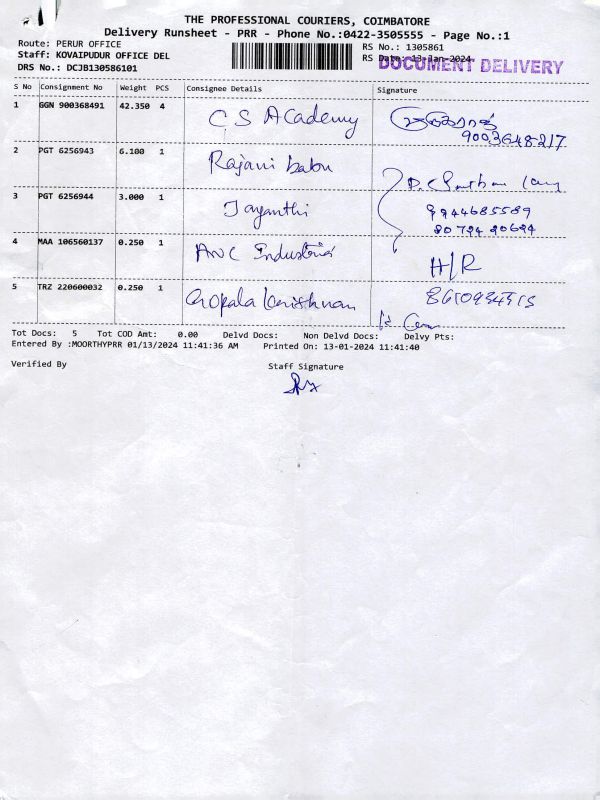 THE PROFESSIONAL COURIERS, COIMBATORE
Delivery Runsheet - PRR - Phone No.:0422-3505555 - Page No.:1
Route: PERUR OFFICE
RS No.: 1305861
Staff: KOVAIPUDUR OFFICE DEL
RS Date: 13-Jan-2024
DOCUMENT DELIVERY
DRS No.: DCJB130586101
S No Consignment No Weight PCS Consignee Details Signature
1 GGN 900368491 42.350 4 CS Academy
9003648217
2 PGT 6256943 6.100 1 Rajani babu
3 PGT 6256944 3.000 1 Jayanthi
9944685589
4 MAA 106560137 0.250 1 ANC Industries H/R
5 TRZ 220600032 0.250 1 Gopala Krishnan
Tot Docs: 5 Tot COD Amt: 0.00 Delvd Docs: Non Delvd Docs: Delvy Pts:
Entered By :MOORTHYPRR 01/13/2024 11:41:36 AM Printed On: 13-01-2024 11:41:40
Verified By Staff Signature